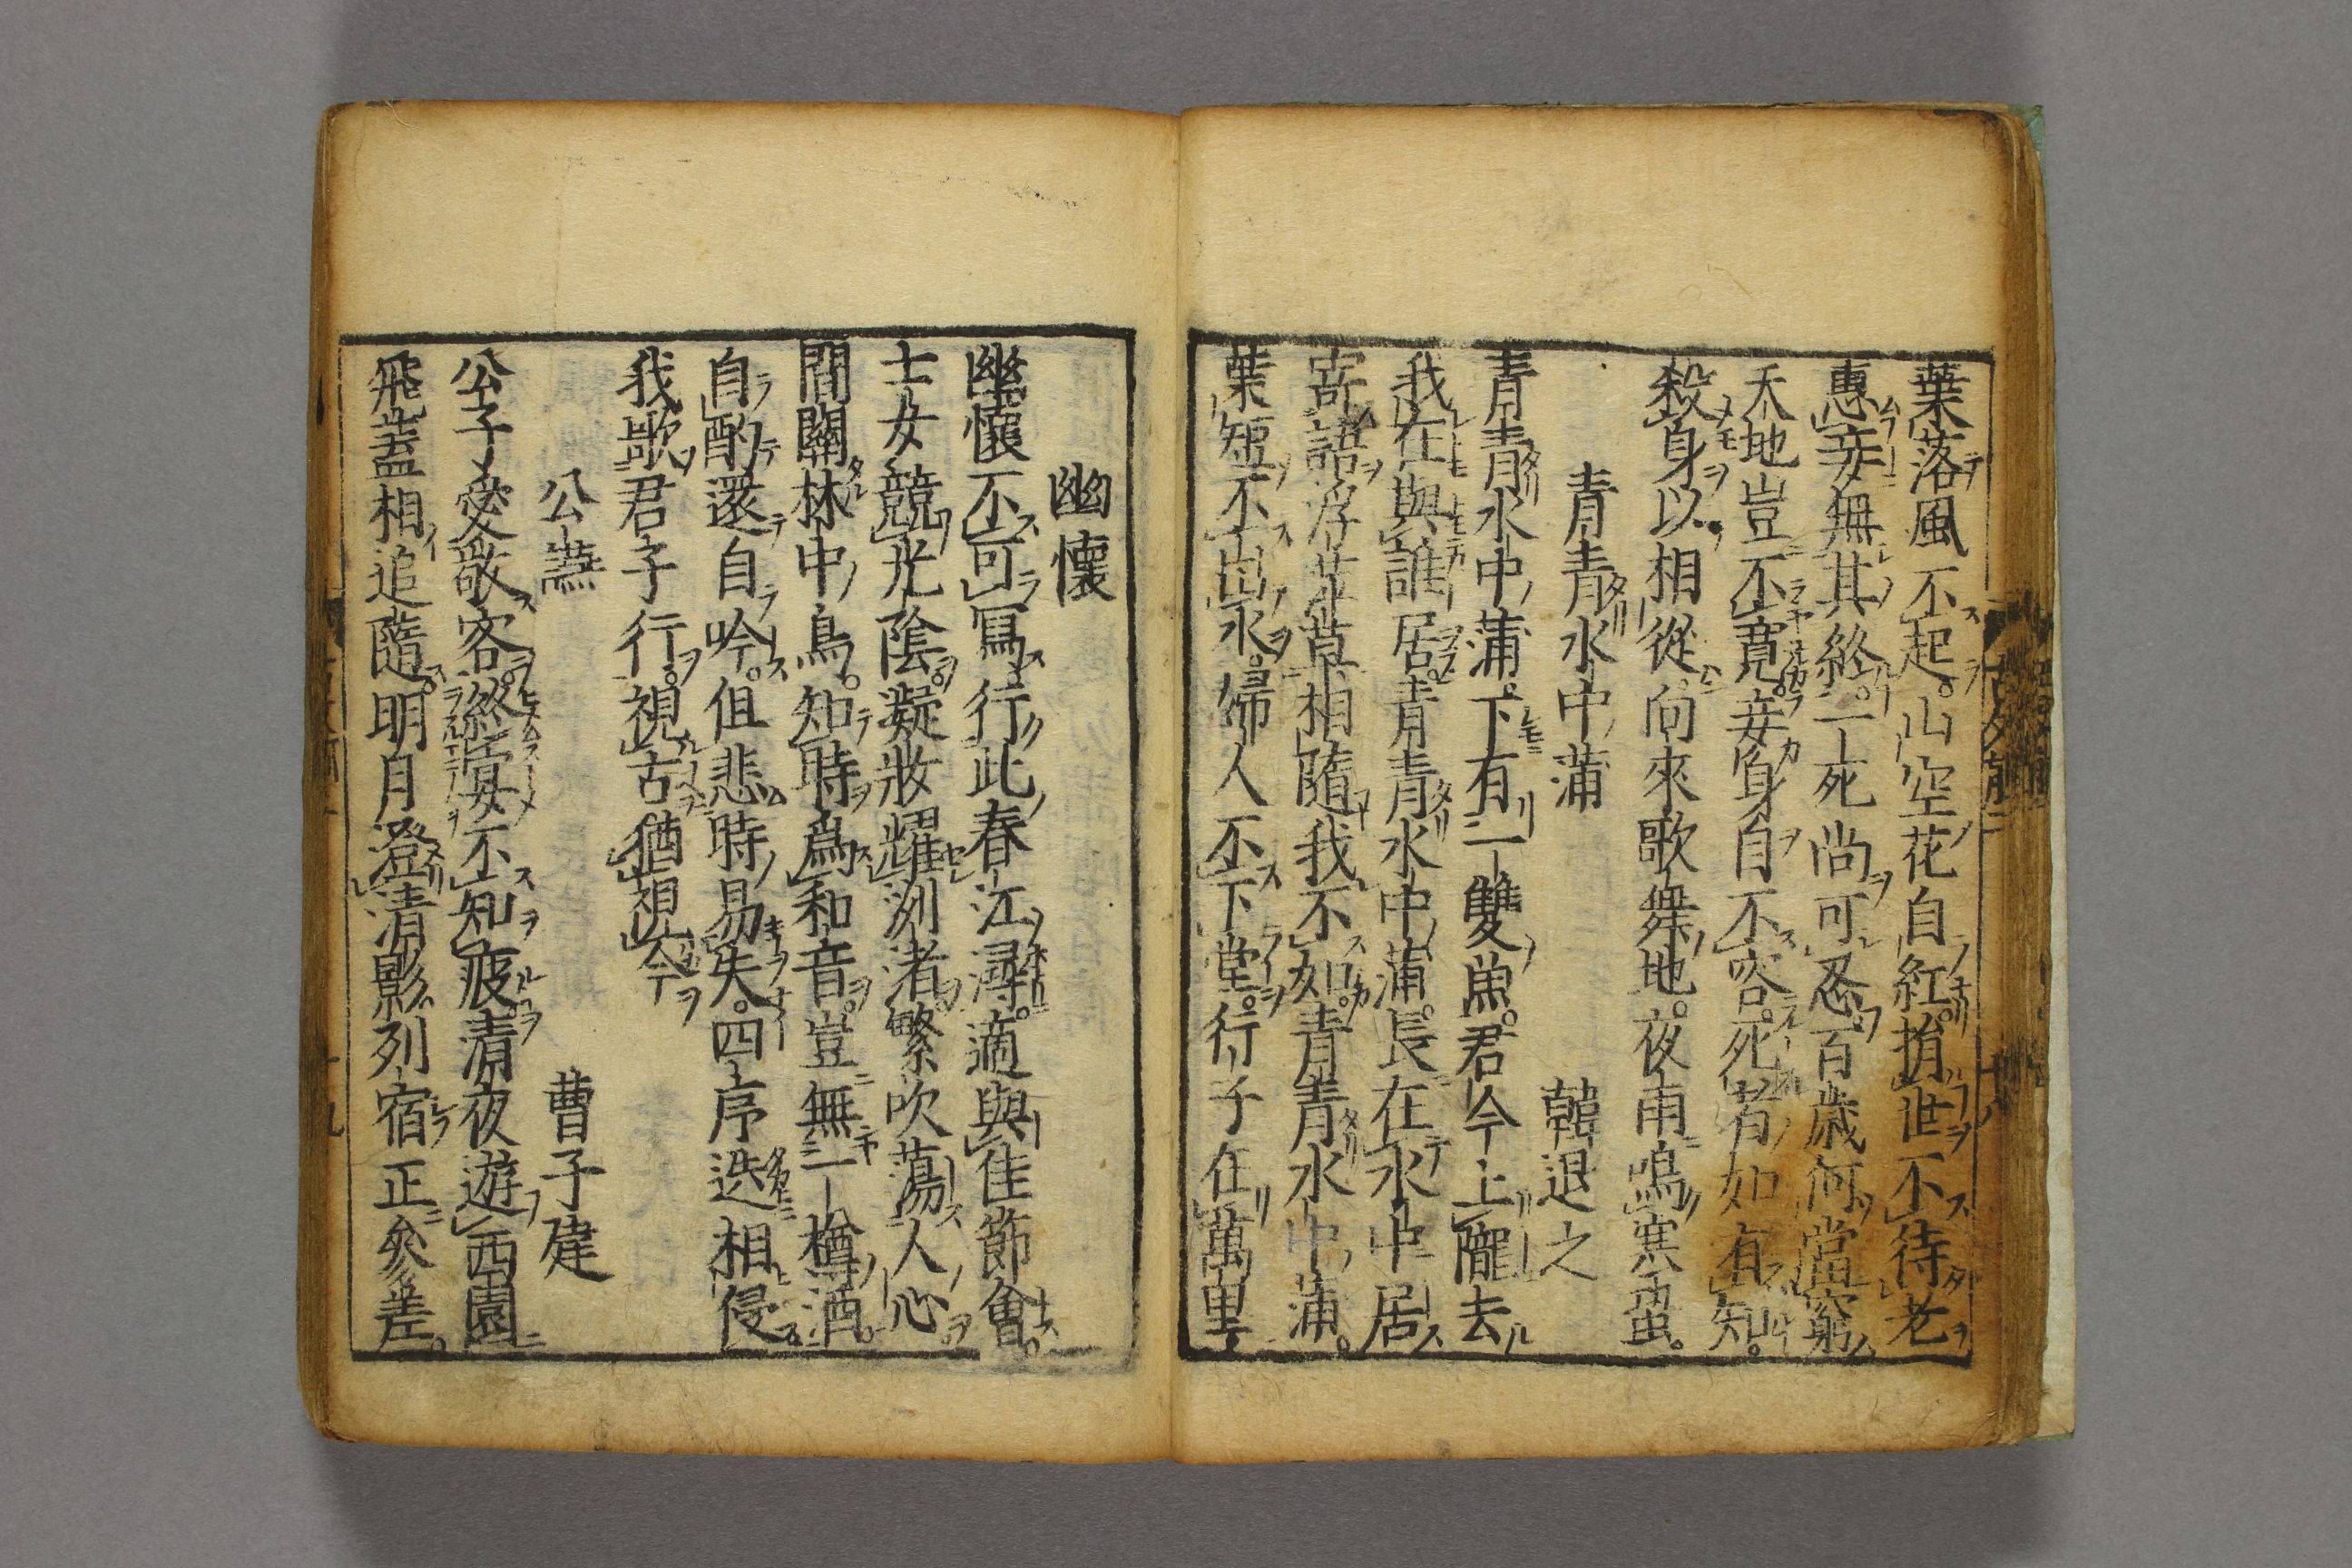 葉落風不起。山空花自紅。捐世不待老
惠妾無其終。一死尚可忍。百歲何當窮
天地豈不寬。妾身自不容。死者如有知。
殺身以相從。向來歌舞地。夜雨鳴寒蛩。
青青水中蒲
韓退之
青青水中蒲。下有一雙魚。君今上隴去
我在與誰居。青青水中蒲。長在水中居
寄語浮萍草相隨我不如。青青水中蒲。
葉短不出水。婦人不下堂。行子在萬里
幽懷
幽懷不可寫。行此春江潯。適與佳節會。
士女競光陰。凝妝耀洲渚。繁吹蕩人心
間關林中鳥。知時爲和音。豈無一樽酒。
自酌還自吟。但悲時易失。四序迭相侵
我歌君子行。視古猶視今
公讌
曹子建
公子愛敬客。終宴不知疲。清夜遊西園
飛蓋相追隨。明月澄清影列宿正參差。